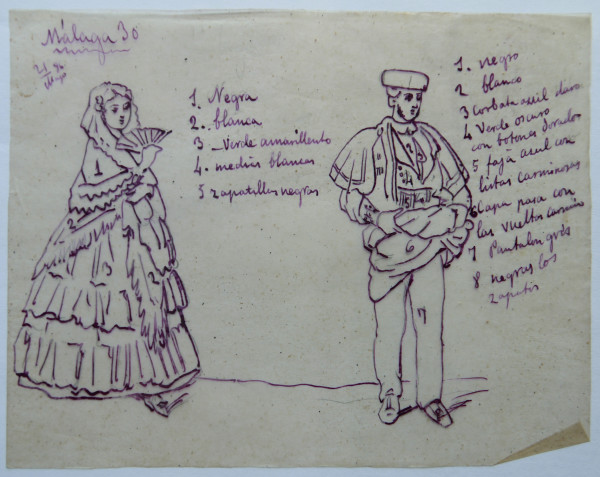 Málaga 30
1. Negra
2. blanca
3 - Verde amarillento
4. medias blancas
5 zapatillas negras
1. negro
2 blanco
3 Corbata azul claro
4 Verde oscuro
con botones dorados
5 faja azul con
listas carminosas
6 Capa roja con
las vueltas carmín
7 Pantalon gris
8 negras los
zapatos
1
2
3
2
1
2
3
4
5
6
7